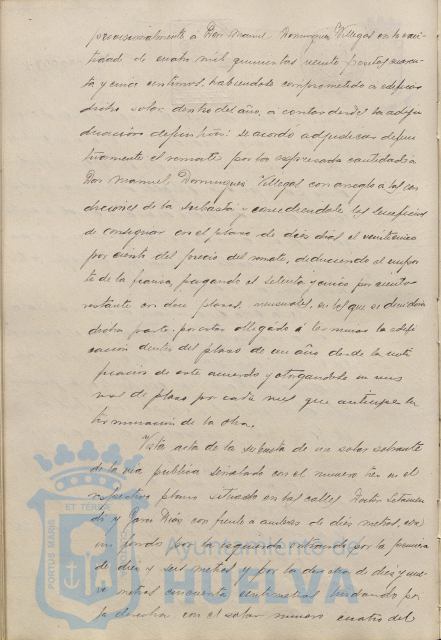 provisionalmente á Don Manuel Dominguez Villegas en la can-
tidad de cuatro mil quinientas veinte pesetas
ta y cinco centimos, habiendose comprometido a edificar
dicho solar dentro del año, á contar desde la adju-
dicacion definitiva: se acordó adjudicar defini-
tivamente el remate por la expresada cantidad á
Don Manuel Dominguez Villegas con arreglo a las con-
diciones de la subasta y concediendole los beneficios
de consignar en el plazo de diez dias el veinticinco
por ciento del precio del remate, deduciendo el impor-
te de la fianza, pagando el setenta y cinco por ciento
restante en doce plazos mensuales, en los que se
dicha parte por estar obligado á terminar la edifi-
cación dentro del plazo de un año desde la noti-
ficacion de este acuerdo y otorgandole un mes
mas de plazo por cada mes que anticipe la
terminación de la obra.
Vista acta de la subasta de un solar sobrante
de la via publica señalado con el numero tres en el
respectivo plano situado en las calles Doctor Letamen-
di y Garci Diaz con frente á ambas de diez metros,
un fondo por la izquierda entrando por la primera
de diez y seis metros y por la derecha de diez y nue-
ve metros cincuenta centimetros lindando por
la derecha con el solar numero cuatro del
PORTUS MARIS ET TERRAE
Ayuntamiento de
HUELVA